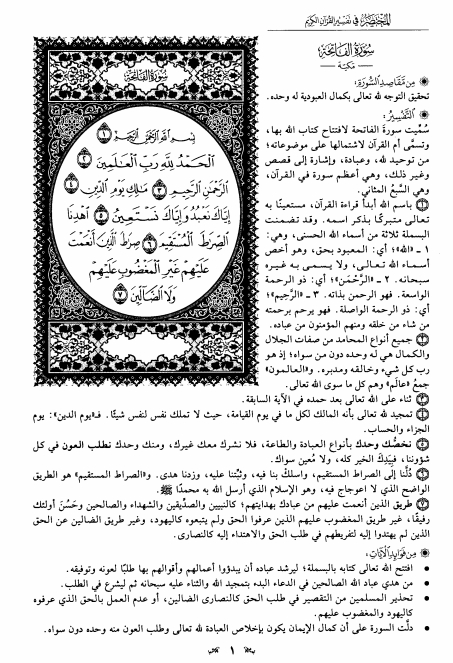 المختصر في تفسير القرآن الكريم
سورة الفاتحة
بسم الله الرحمن الرحيم ١
الحمد لله رب العالمين ٢
الرحمن الرحيم ٣ مالك يوم الدين ٤
إياك نعبد وإياك نستعين ٥ اهدنا
الصراط المستقيم ٦ صراط الذين أنعمت
عليهم غير المغضوب عليهم
ولا الضالين ٧
سورة الفاتحة
مكية
من مقاصد السورة:
تحقيق التوجه لله تعالى بكمال العبودية له وحده.
التفسير:
سُمِّيت سورة الفاتحة لافتتاح كتاب الله بها،
وتسمَّى أم القرآن لاشتمالها على موضوعاته؛
من توحيد لله، وعبادة، وإشارة إلى قصص
وغير ذلك، وهي أعظم سورة في القرآن،
وهي السَّبعُ المثاني.
١ باسم الله أبدأ قراءة القرآن، مستعينًا به
تعالى متبركًا بذكر اسمه. وقد تضمنت
البسملة ثلاثة من أسماء الله الحسنى، وهي:
١ - «الله»؛ أي: المعبود بحق، وهو أخص
أسماء الله تعالى، ولا يسمى به غيره
سبحانه. ٢ - «الرَّحْمَن»؛ أي: ذو الرحمة
الواسعة. فهو الرحمن بذاته. ٣ - «الرَّحِيم»؛
أي: ذو الرحمة الواصلة. فهو يرحم برحمته
من شاء من خلقه ومنهم المؤمنون من عباده.
٢ جميع أنواع المحامد من صفات الجلال
والكمال هي له وحده دون من سواه؛ إذ هو
رب كل شيء وخالقه ومدبره. و«العالمون»
جمعُ «عالَم» وهم كل ما سوى الله تعالى.
٣ ثناء على الله تعالى بعد حمده في الآية السابقة.
٤ تمجيد لله تعالى بأنه المالك لكل ما في يوم القيامة، حيث لا تملك نفس لنفس شيئًا. فـ«يوم الدين»: يوم
الجزاء والحساب.
٥ نخصُّك وحدك بأنواع العبادة والطاعة، فلا نشرك معك غيرك، ومنك وحدك نطلب العون في كل
شؤوننا، فبِيَدِك الخير كله، ولا مُعين سواك.
٦ دُلَّنا إلى الصراط المستقيم، واسلك بنا فيه، وثبِّتنا عليه، وزدنا هدى. و«الصراط المستقيم» هو الطريق
الواضح الذي لا اعوجاج فيه، وهو الإسلام الذي أرسل الله به محمدًا ﷺ.
٧ طريق الذين أنعمت عليهم من عبادك بهدايتهم؛ كالنبيين والصدِّيقين والشهداء والصالحين وحَسُنَ أولئك
رفيقًا، غير طريق المغضوب عليهم الذين عرفوا الحق ولم يتبعوه كاليهود، وغير طريق الضالين عن الحق
الذين لم يهتدوا إليه لتفريطهم في طلب الحق والاهتداء إليه كالنصارى.
من فوائد الآيات:
• افتتح الله تعالى كتابه بالبسملة؛ ليرشد عباده أن يبدؤوا أعمالهم وأقوالهم بها طلبًا لعونه وتوفيقه.
• من هدي عباد الله الصالحين في الدعاء البدء بتمجيد الله والثناء عليه سبحانه ثم ليشرع في الطلب.
• تحذير المسلمين من التقصير في طلب الحق كالنصارى الضالين، أو عدم العمل بالحق الذي عرفوه
كاليهود والمغضوب عليهم.
• دلَّت السورة على أن كمال الإيمان يكون بإخلاص العبادة لله تعالى وطلب العون منه وحده دون سواه.
١